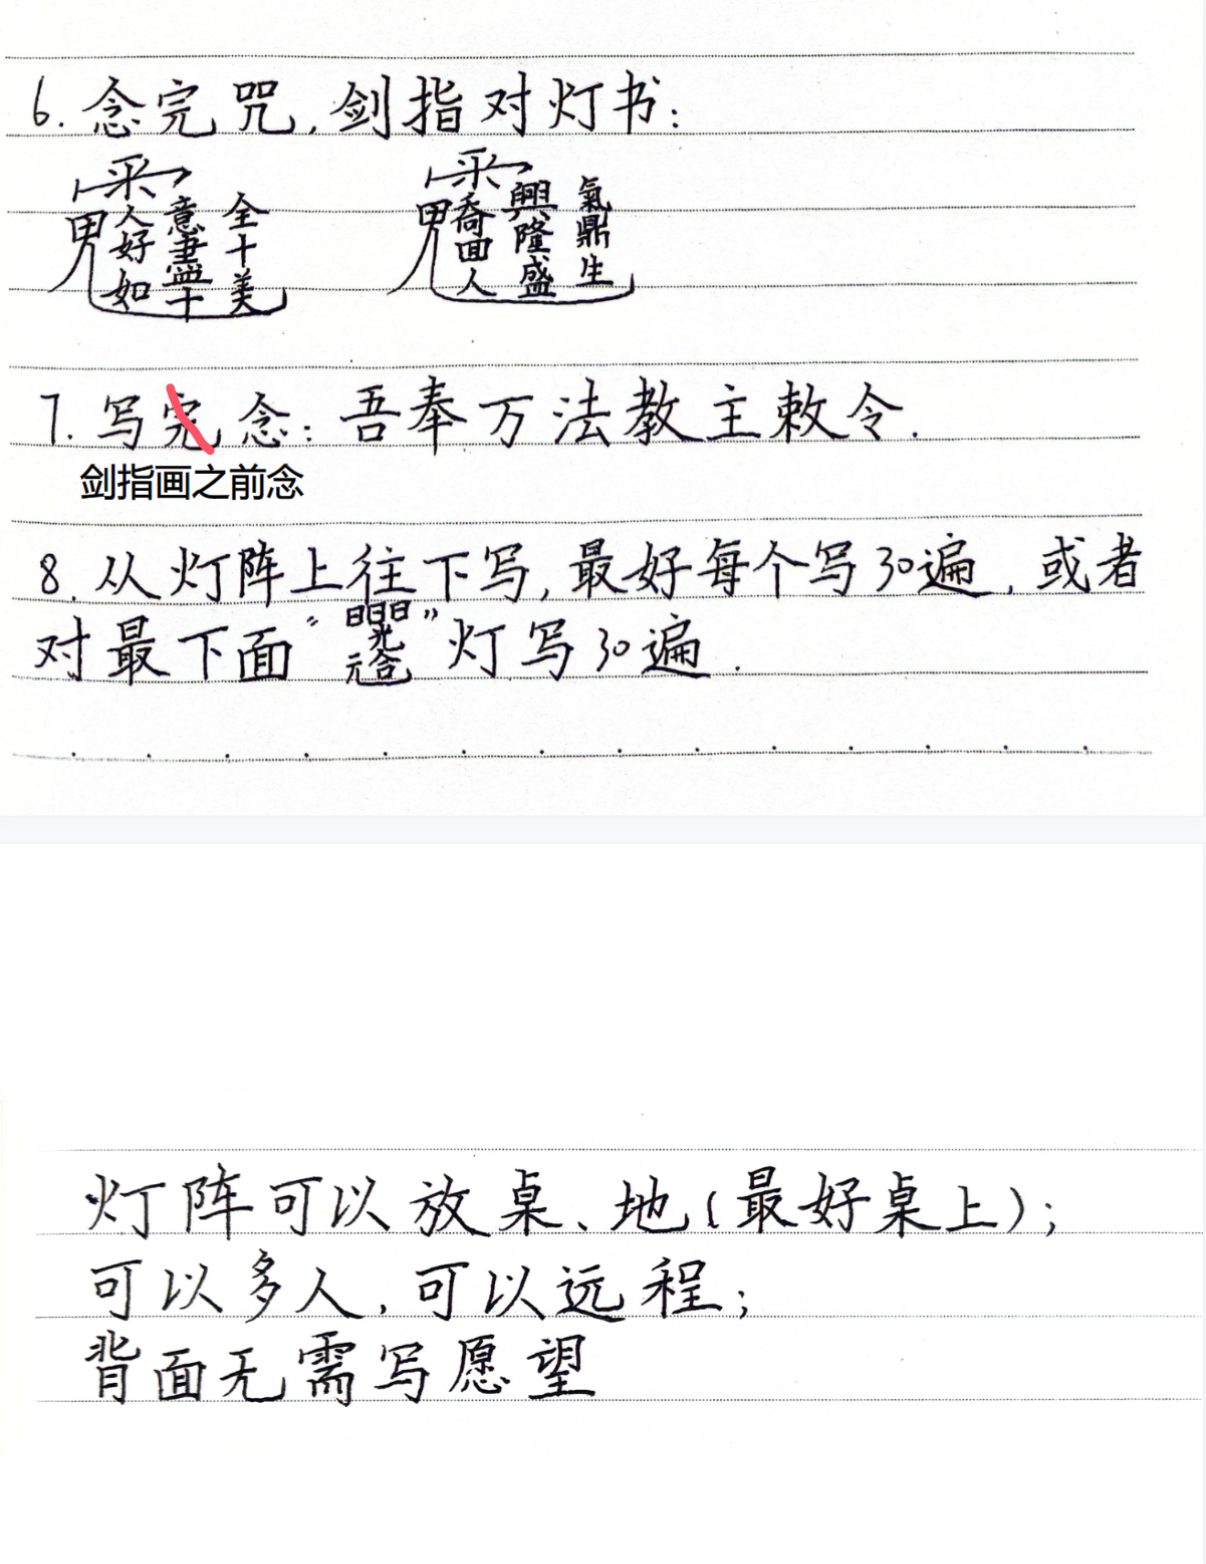 6. 念完咒,剑指对灯书:
人好如 意 十 全十美
人 興隆盛 氣鼎生
7. 写完念: 吾奉万法教主敕令.
剑指画之前念
8. 从灯阵上往下写,最好每个写30遍,或者
对最下面“ ”灯写30遍.
灯阵可以放桌、地(最好桌上);
可以多人,可以远程;
背面无需写愿望